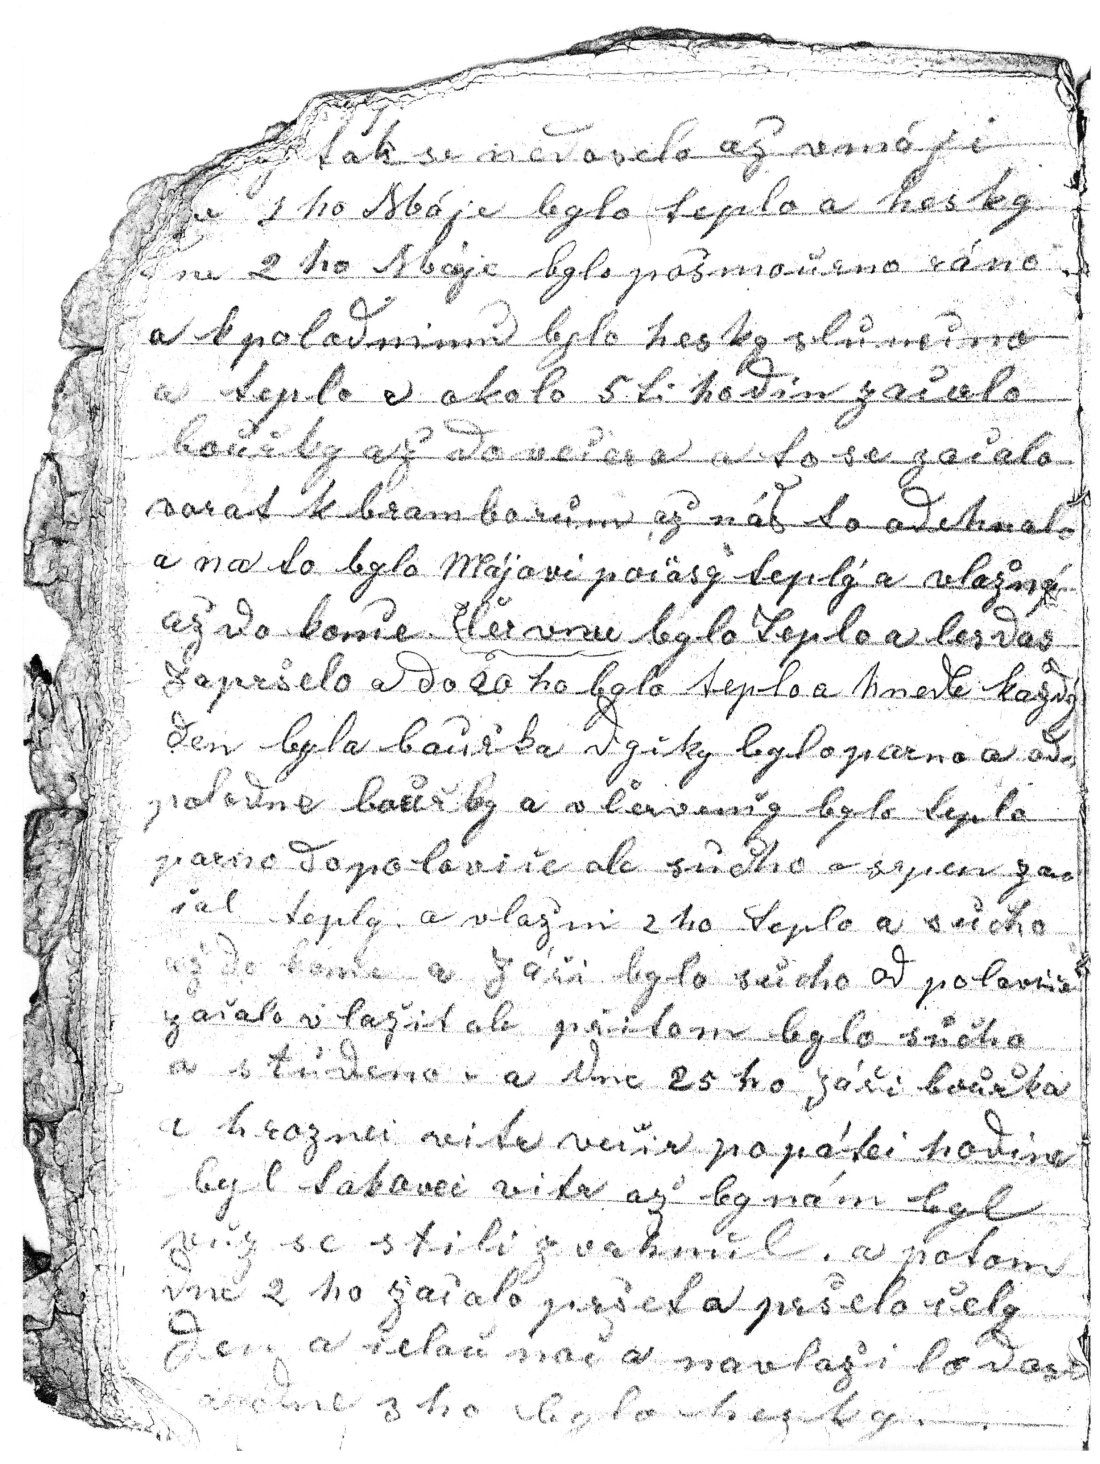 tak se nedovelo až vmáji
1 ho Máje bylo teplo a hesky
ne 2 ho Máje bylo pošmoúrno ráno
a kpoladnimu bylo hesky slunečno
a teplo v okolo 5 ti hodin začelo
bouřky až do večera a to se začalo
vorat k bramborům až náš to odehnalo
a na to bylo Májovi počasý teplý a vlažný
až do konce Červnu bylo Teplo a lesdas
Zapršelo a do 20 ho bylo teplo a hnedle každý
den byla bouřka vždiky bylo parno a od-
poledne bouřky a v červenci bylo teplo
parno dopolovice ale sucho a srpen za-
čal teply. a vlažni 2 ho teplo a sucho
až do konce a Záři bylo sucho od polovice
začalo vlažit ale přitom bylo sucho
a studeno. a dne 25 ho záři bouřka
a hroznei vitr večir po pátei hodine
byl takovei vitr až by nám byl
vúz se stili zvrhnul. a potom
dne 2 ho začalo pršet a pršelo čely
Den a čelou noc a navlaži lo dost
a odne 3 ho bylo hezky.